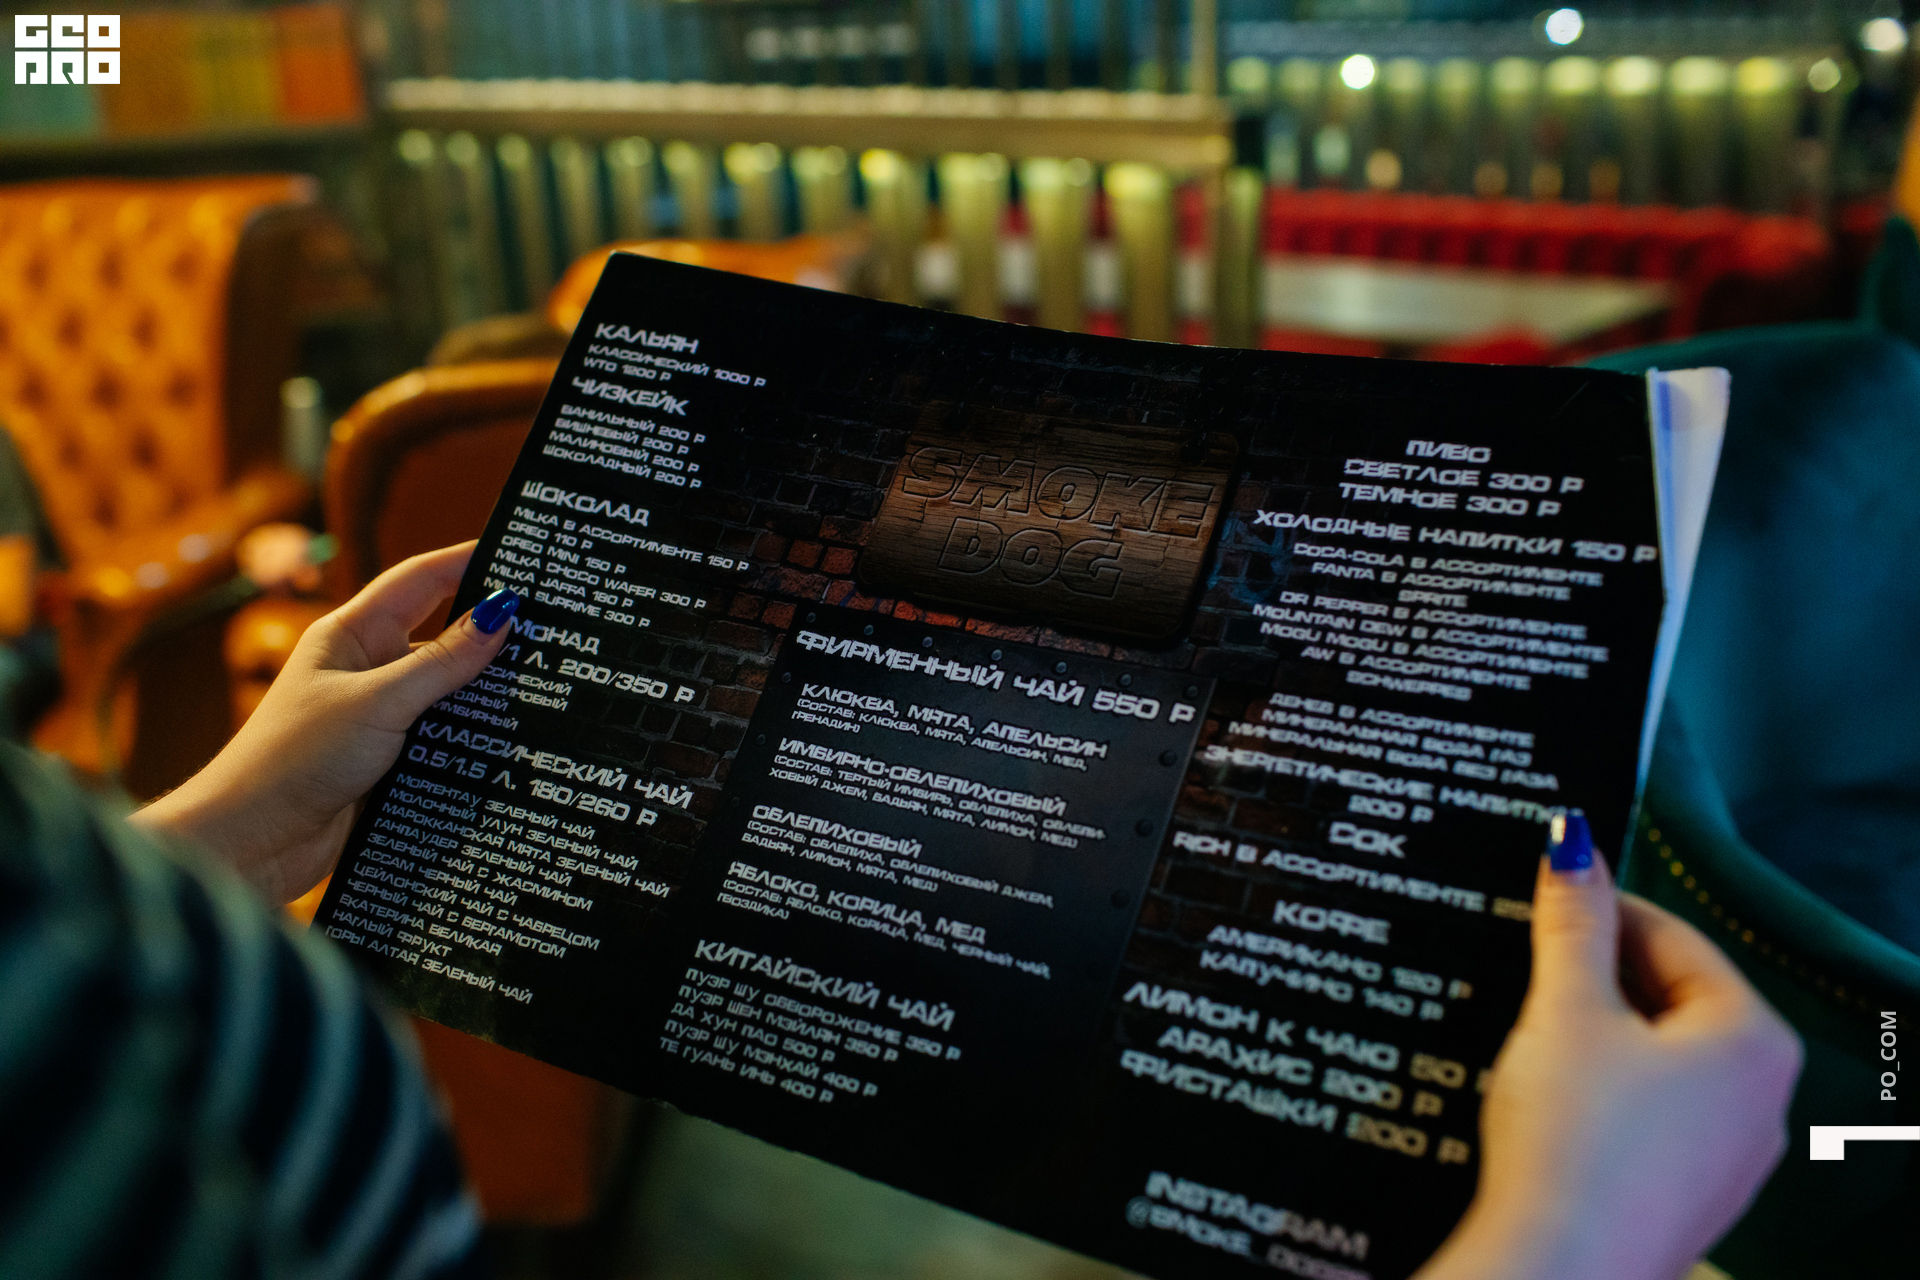 GEO
PRO
КАЛЬЯН
КЛАССИЧЕСКИЙ 1000 Р
WTO 1200 Р
ЧИЗКЕЙК
ВАНИЛЬНЫЙ 200 Р
ВИШНЕВЫЙ 200 Р
МАЛИНОВЫЙ 200 Р
ШОКОЛАДНЫЙ 200 Р
ШОКОЛАД
MILKA В АССОРТИМЕНТЕ 150 Р
OREO 110 Р
OREO MINI 150 Р
MILKA CHOCO WAFER 300 Р
MILKA JAFFA 180 Р
SUPRIME 300 Р
МОНАД
/1 Л. 200/350 Р
КЛАССИЧЕСКИЙ
0.5/1.5 Л. 180/260 Р
ИМБИРНЫЙ
КЛАССИЧЕСКИЙ ЧАЙ
МОРГЕНТАУ ЗЕЛЕНЫЙ ЧАЙ
МОЛОЧНЫЙ УЛУН ЗЕЛЕНЫЙ ЧАЙ
МАРОККАНСКАЯ МЯТА ЗЕЛЕНЫЙ ЧАЙ
ГАНПАУДЕР ЗЕЛЕНЫЙ ЧАЙ
ЗЕЛЕНЫЙ ЧАЙ С ЖАСМИНОМ
АССАМ ЧЕРНЫЙ ЧАЙ
ЦЕЙЛОНСКИЙ ЧАЙ С ЧАБРЕЦОМ
ЧЕРНЫЙ ЧАЙ С БЕРГАМОТОМ
ЕКАТЕРИНА ВЕЛИКАЯ
НАГЛЫЙ ФРУКТ
ГОРЫ АЛТАЯ ЗЕЛЕНЫЙ ЧАЙ
SMOKE
DOG
ФИРМЕННЫЙ ЧАЙ 550 Р
КЛЮКВА, МЯТА, АПЕЛЬСИН
(СОСТАВ: КЛЮКВА, МЯТА, АПЕЛЬСИН, МЕД,
ГРЕНАДИН)
ИМБИРНО-ОБЛЕПИХОВЫЙ
(СОСТАВ: ТЕРТЫЙ ИМБИРЬ, ОБЛЕПИХА, ОБЛЕПИ-
ХОВЫЙ ДЖЕМ, БАДЬЯН, МЯТА, ЛИМОН, МЕД)
ОБЛЕПИХОВЫЙ
(СОСТАВ: ОБЛЕПИХА, ОБЛЕПИХОВЫЙ ДЖЕМ,
БАДЬЯН, ЛИМОН, МЯТА, МЕД)
ЯБЛОКО, КОРИЦА, МЕД
(СОСТАВ: ЯБЛОКО, КОРИЦА, МЕД, ЧЕРНЫЙ ЧАЙ,
ГВОЗДИКА)
КИТАЙСКИЙ ЧАЙ
ПУЭР ШУ ОБВОРОЖЕНИЕ 350 Р
ПУЭР ШЕН МЭЙЛЯН 350 Р
ДА ХУН ПАО 500 Р
ПУЭР ШУ МЭНХАЙ 400 Р
ТЕ ГУАНЬ ИНЬ 400 Р
ПИВО
СВЕТЛОЕ 300 Р
ТЕМНОЕ 300 Р
ХОЛОДНЫЕ НАПИТКИ 150 Р
COCA-COLA В АССОРТИМЕНТЕ
FANTA В АССОРТИМЕНТЕ
SPRITE
DR PEPPER В АССОРТИМЕНТЕ
MOUNTAIN DEW В АССОРТИМЕНТЕ
MOGU MOGU В АССОРТИМЕНТЕ
AW В АССОРТИМЕНТЕ
SCHWEPPES
ДЕНЕБ В АССОРТИМЕНТЕ
МИНЕРАЛЬНАЯ ВОДА ГАЗ
МИНЕРАЛЬНАЯ ВОДА БЕЗ ГАЗА
ЭНЕРГЕТИЧЕСКИЕ НАПИТКИ
200 Р
СОК
RICH В АССОРТИМЕНТЕ
КОФЕ
АМЕРИКАНО 120 Р
КАПУЧИНО 140 Р
ЛИМОН К ЧАЮ 50
АРАХИС 200 Р
ФИСТАШКИ 200 Р
INSTAGRAM
PO_COM